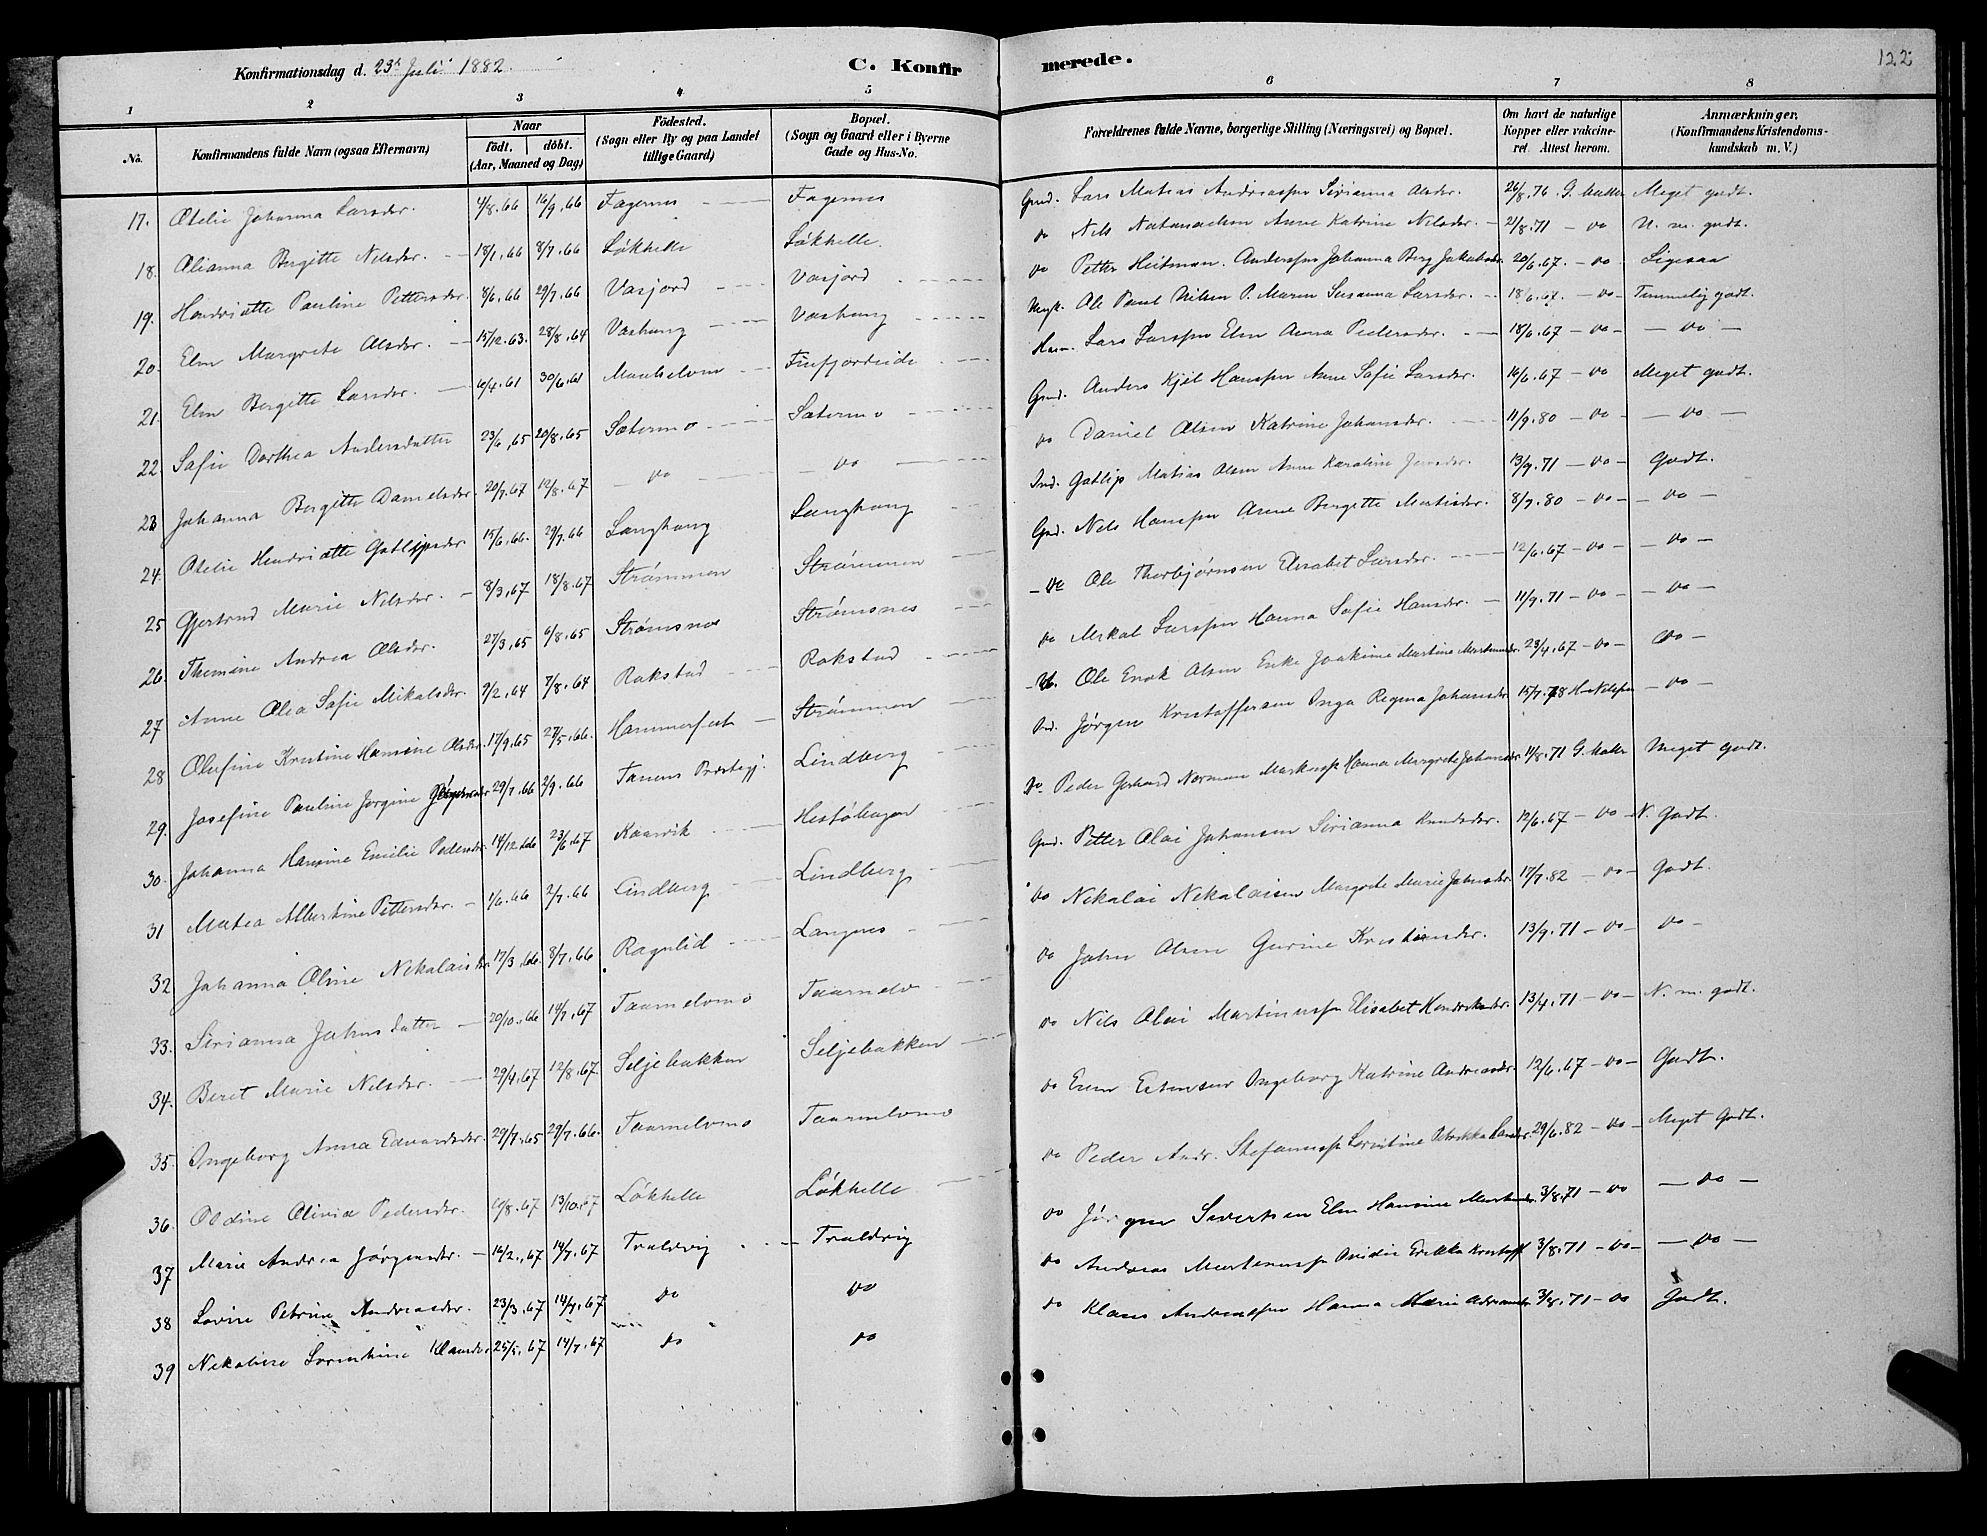 Konfirmationsdag d. 23d Juli 1882. C. Konfirmerede. 122
1 2 3 4 5 6 7 8
No. Konfirmandens fulde Navn (ogsaa Efternavn) Naar født. døbt. (Aar, Maaned og Dag) Fødested. (Sogn eller By og paa Landet tillige Gaard) Bopæl. (Sogn og Gaard eller i Byerne Gade og Hus-No. Forældrenes fulde Navne, borgerlige Stilling (Næringsvei) og Bopæl. Om havt de naturlige Kopper eller vakcineret. Attest herom. Anmærkninger. (Konfirmandens Kristendomskundskab m. V.)
17. Otelie Johanna Larsdr. 4/8.66 16/9.66 Fagernes Fagernes Grd. Lars Matias Andreassen Sirianna Olsdr. 26/8.76 G. Møller Meget godt.
18. Olianna Bergitte Nilsdr. 18/1.66 8/7.66 Løkhelle Løkhelle do Nils Natanaelsen Anne Katrine Nilsdr. 21/8.71 do N. m. godt.
19. Hendriette Pauline Pettersdr. 8/6.66 29/7.66 Vasjord Vasjord do Petter Heitman Anderssen Johanna Berg Jakobsdr. 20/6.67. do Ligesaa
20. Elen Margrete Olsdr. 15/12.63. 28/8.64 Vashaug Vashaug Ole Paul Nilsen P. Maren Susanna Larsdr. 18/6.67. do Temmelig godt.
21. Elen Bergitte Larsdr. 10/4.61 30/6.61 Maalselven Finfjordeide Lars Larssen Elen Anna Pedersdr. 18/6.67 do do
22 Safie Dorthea Andersdatter 23/6.65 20/8.65 Sætermo Sætermo Grd. Anders Kjel Hanssen Anne Safie Larsdr. 16/6.67 do Meget godt.
23 Johanna Bergitte Danielsdr. 20/7.67 12/8.67 do do do Daniel Olsen Katrine Johansdr. 11/9.80 do do
24. Otelie Hendriette Gotlipsdr 15/6.66. 29/7.66 Langhaug Langhaug Ind. Gotlip Matias Olsen Anne Karoline Jensdr. 13/9.71 do Godt.
25 Gjertrud Marie Nilsdr. 8/3.67 18/8.67 Strømmen Strømmen Grd. Nils Hanssen Anne Bergitte Martinsdr. 8/9.80 do do
26. Themine Andrea Olsdr. 27/3.65 6/8.65 Strømsnes Strømsnes do Ole Thorbjørnsen Elisabet Larsdr. 12/6.67 do do
27 Anne Olea Safie Mikalsdr. 2/2.64 7/8.64 Rakstad Rakstad do Mikal Larssen Hanna Safie Hansdr. 11/9.71 do do
28 Olufine Kristine Hansine Olsdr. 17/9.65 27/5.66. Hammerfest Strømmen Ole Enok Olsen Enke Joakime Martine 23/4.67 do do
29. Josefine Pauline Jørgine Jørgensdr 29/7.66 2/9.66 Tanens Præstegj. Lindberg Ind. Jørgen Kristoffersen Inga Regina Johansdr. 15/7.78 H. Nilssen do
30. Johanna Hansine Emilie Pedersdr. 14/12.66 23/6.67 Kaarvik Hestøhagen do Peder Gerhard Norman Markussen Hanna Margrete Johansdr. 11/8.71 G. Møller Meget godt.
31 Matea Albertine Pettersdr. 1/6.66 2/7.66 Lindberg Lindberg Grd. Petter Olai Johansen Sirianna Knudsdr. 12/6.67 do N. Godt.
32 Johanna Oline Nikolaisdr. 17/3.66. 8/7.66 Rognlid Langnes do Nikolai Nikolaisen Margrete Marie Johnsdr 17/7.82 do Godt.
33. Sirianna Johnsdatter 20/10.66 14/7.67 Taarnelvmo Taarnelv do John Olsen Gurine Kristiansdr. 13/9.71 do do
34. Beret Marie Nilsdr. 29/4.67 12/8.67 Seljebakken Seljebakken do Nils Olai Martinussen Elisabet Hendriksdr. 13/4.71 do N. m. godt.
35. Ingeborg Anna Edvardsdr. 29/7.65 29/7.66. Taarnelvmo Taarnelvmo do Ingeborg Katrine Andreasdr. 12/6.67 do Godt.
36. Oldine Olivie Pedersdr. 10/8.67 13/10.67 Løkhelle Løkhelle do Peder Andr. Stefanussen Lorentine Larsdr. 29/6.82 do Meget Godt.
37 Marie Andrea Jørgensdr. 16/2.67 14/7.67 Traldvig Traldvig do Jørgen Sivertsen Elen Hansine 3/8.71 do do
38 Lovise Petrine Andreasdr. 23/3.67 14/7.67 do do do Andreas Martinussen Ovidie Erikka Kristoff 3/8.71 do do
39 Nikoline Lorentine Klausdr 25/5.67 14/7.67 do do do Klaus Andreassen Hanna Marie 3/8.71 do Godt.